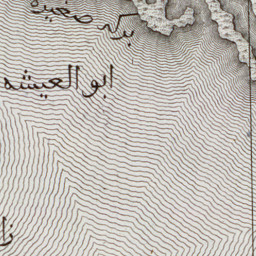 بركه صغيره
ابو العيشه